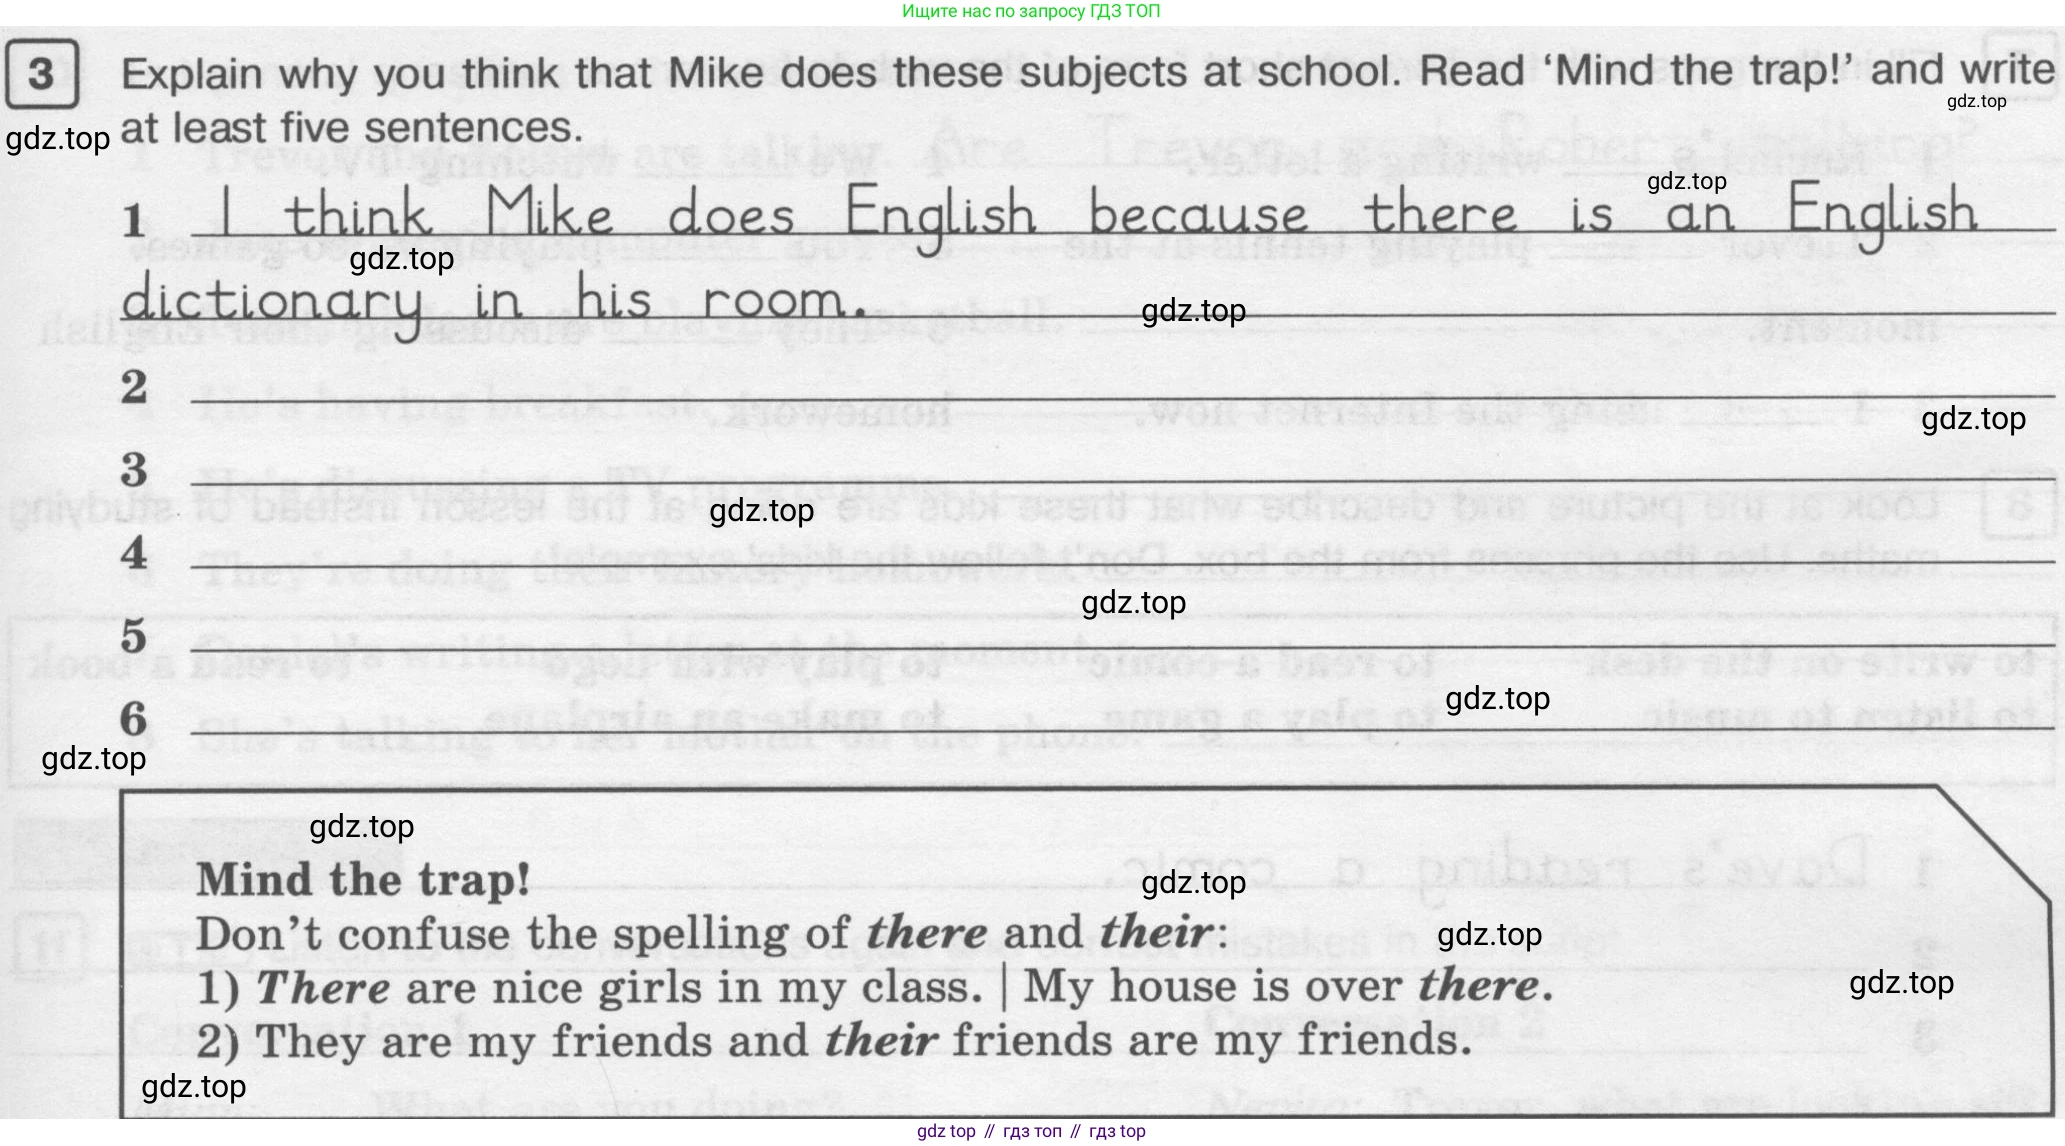 Ищите нас по запросу ГДЗ ТОП
3 Explain why you think that Mike does these subjects at school. Read ‘Mind the trap!’ and write
gdz.top
gdz.top at least five sentences.
gdz.top
1 I think Mike does English because there is an English
gdz.top
dictionary in his room.
gdz.top
2
gdz.top
3
gdz.top
4
gdz.top
5
gdz.top
6
gdz.top
gdz.top
Mind the trap!
gdz.top
Don’t confuse the spelling of there and their:
gdz.top
1) There are nice girls in my class. | My house is over there.
gdz.top
2) They are my friends and their friends are my friends.
gdz.top
gdz top // гдз топ // гдз top